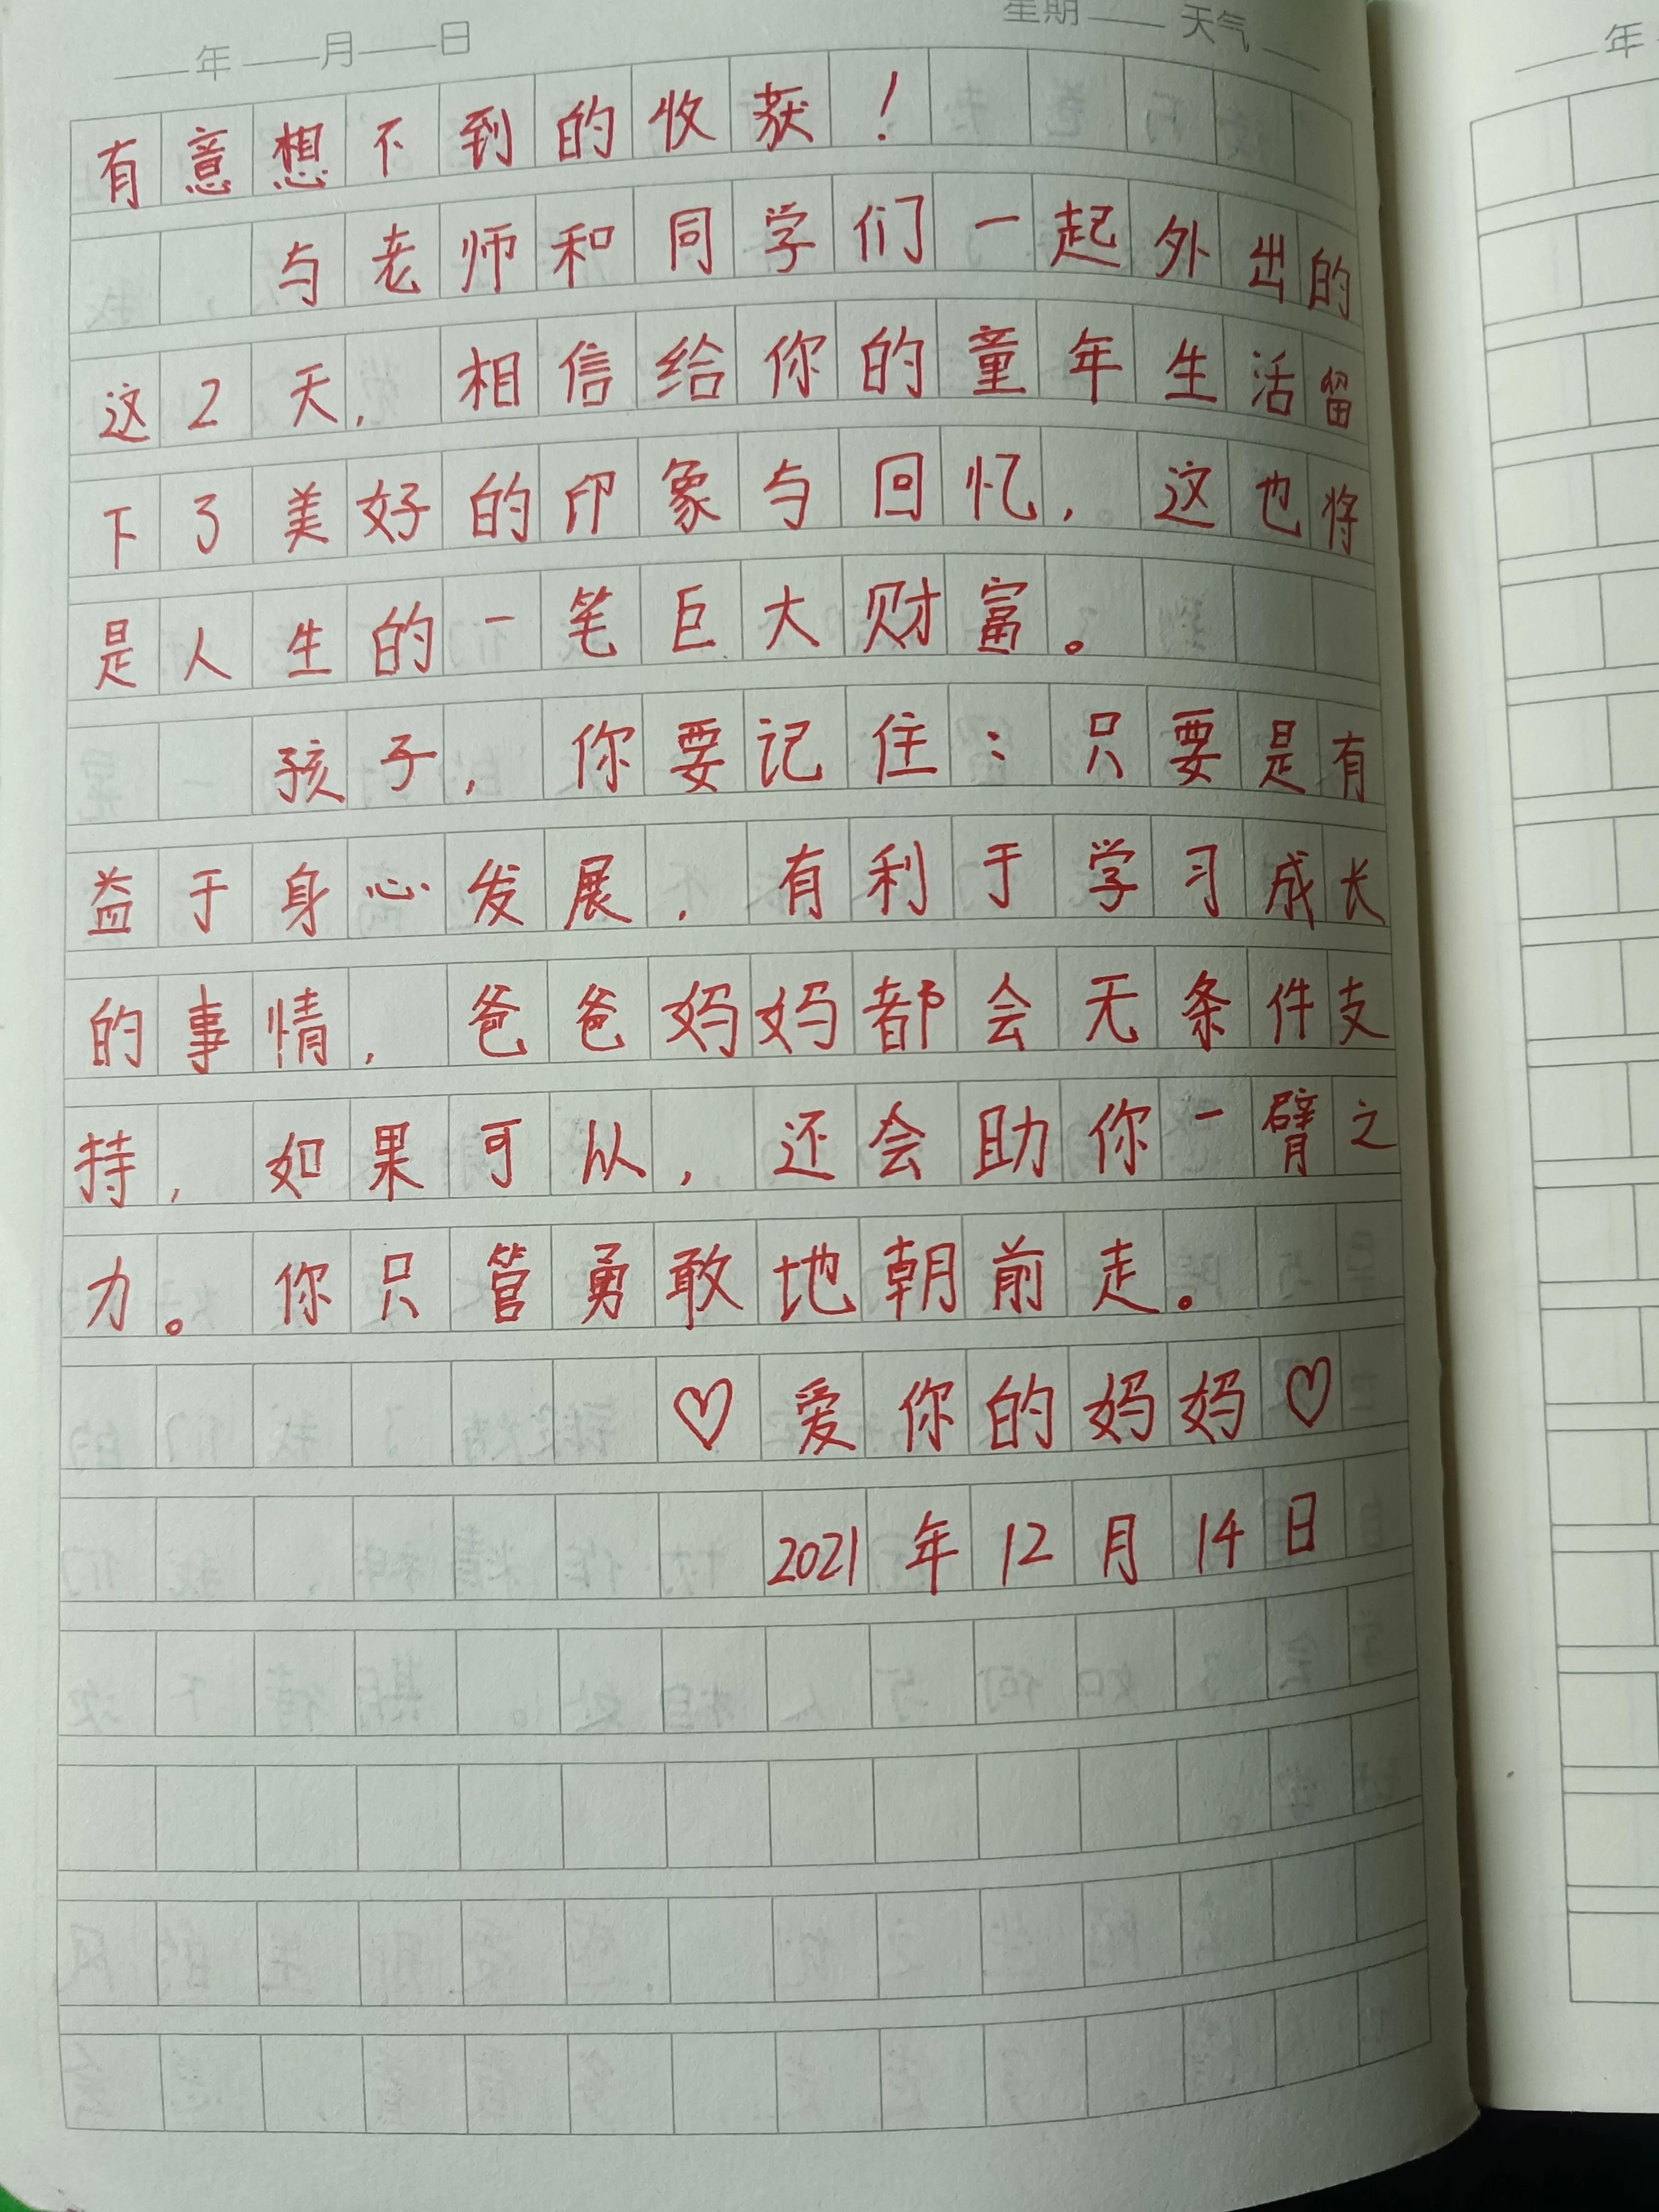 年 月 日 星期 天气 年
有意想不到的收获！
与老师和同学们一起外出的
这2天，相信给你的童年生活留
下了美好的印象与回忆，这也将
是人生的一笔巨大财富。
孩子，你要记住：只要是有
益于身心发展，有利于学习成长
的事情，爸爸妈妈都会无条件支
持，如果可以，还会助你一臂之
力。你只管勇敢地朝前走。
♡爱你的妈妈♡
2021年12月14日